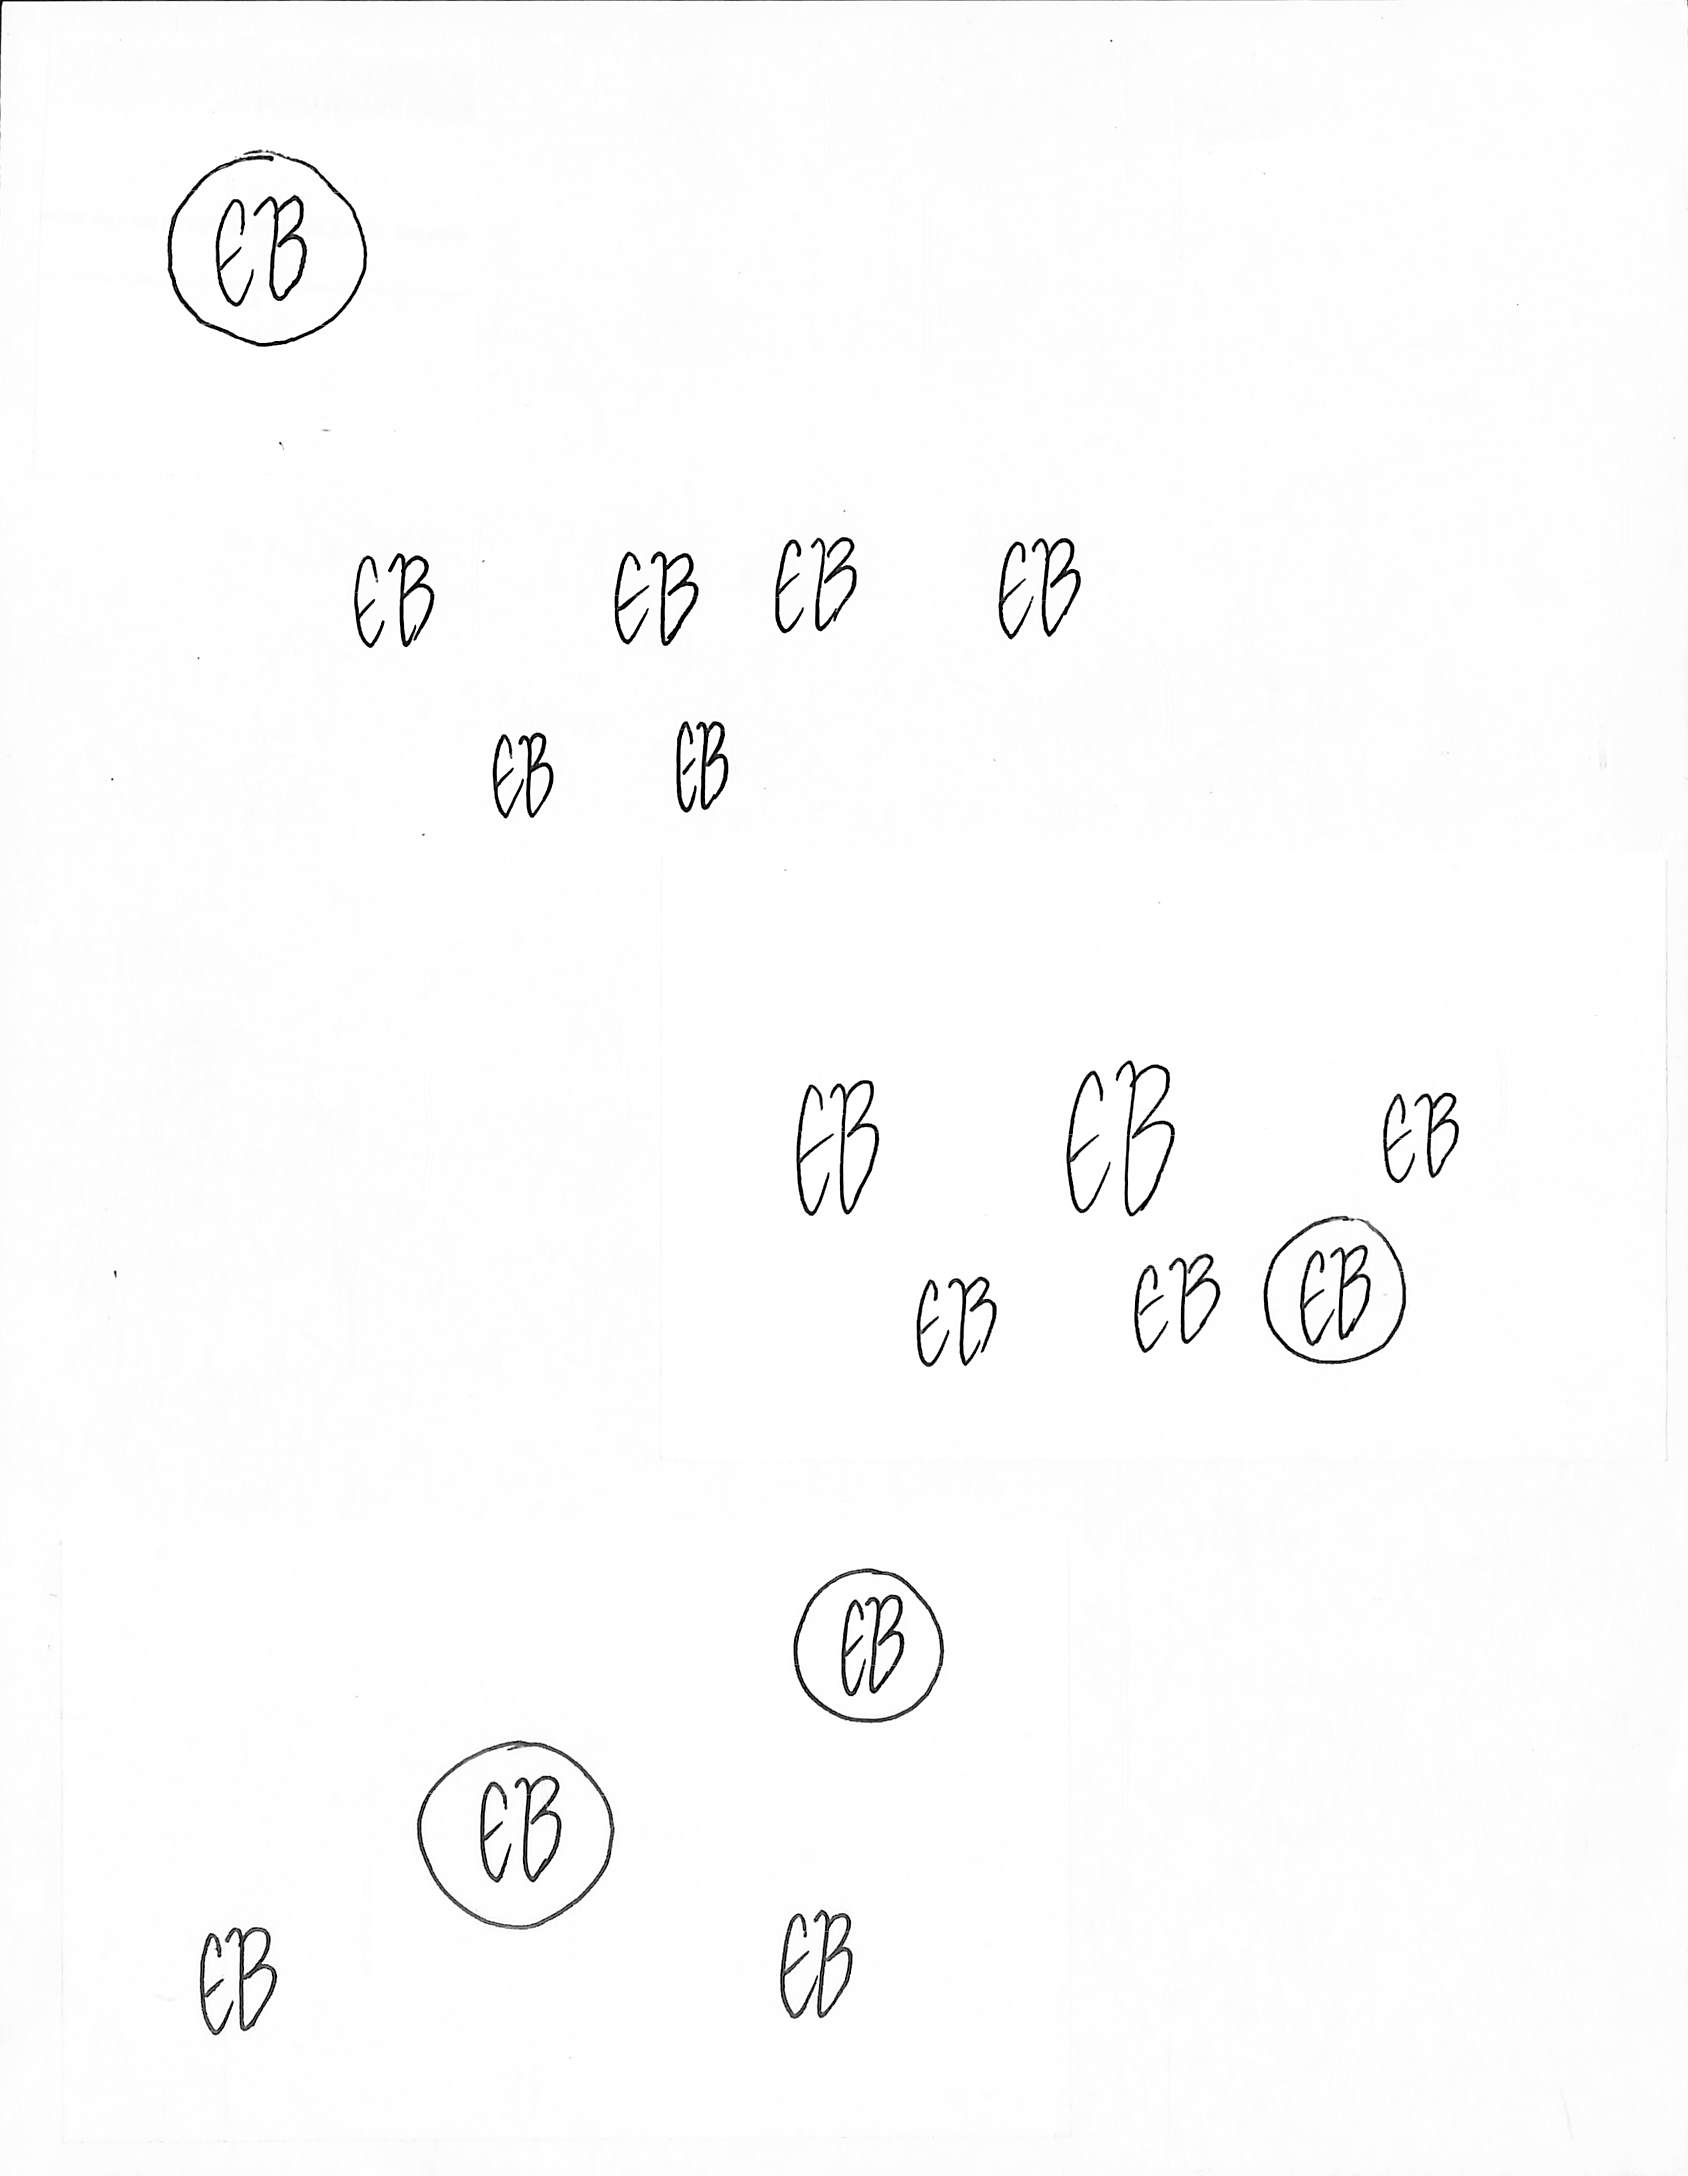 EB
EB EB EB EB
EB EB
EB EB EB
EB EB EB
EB
EB
EB EB